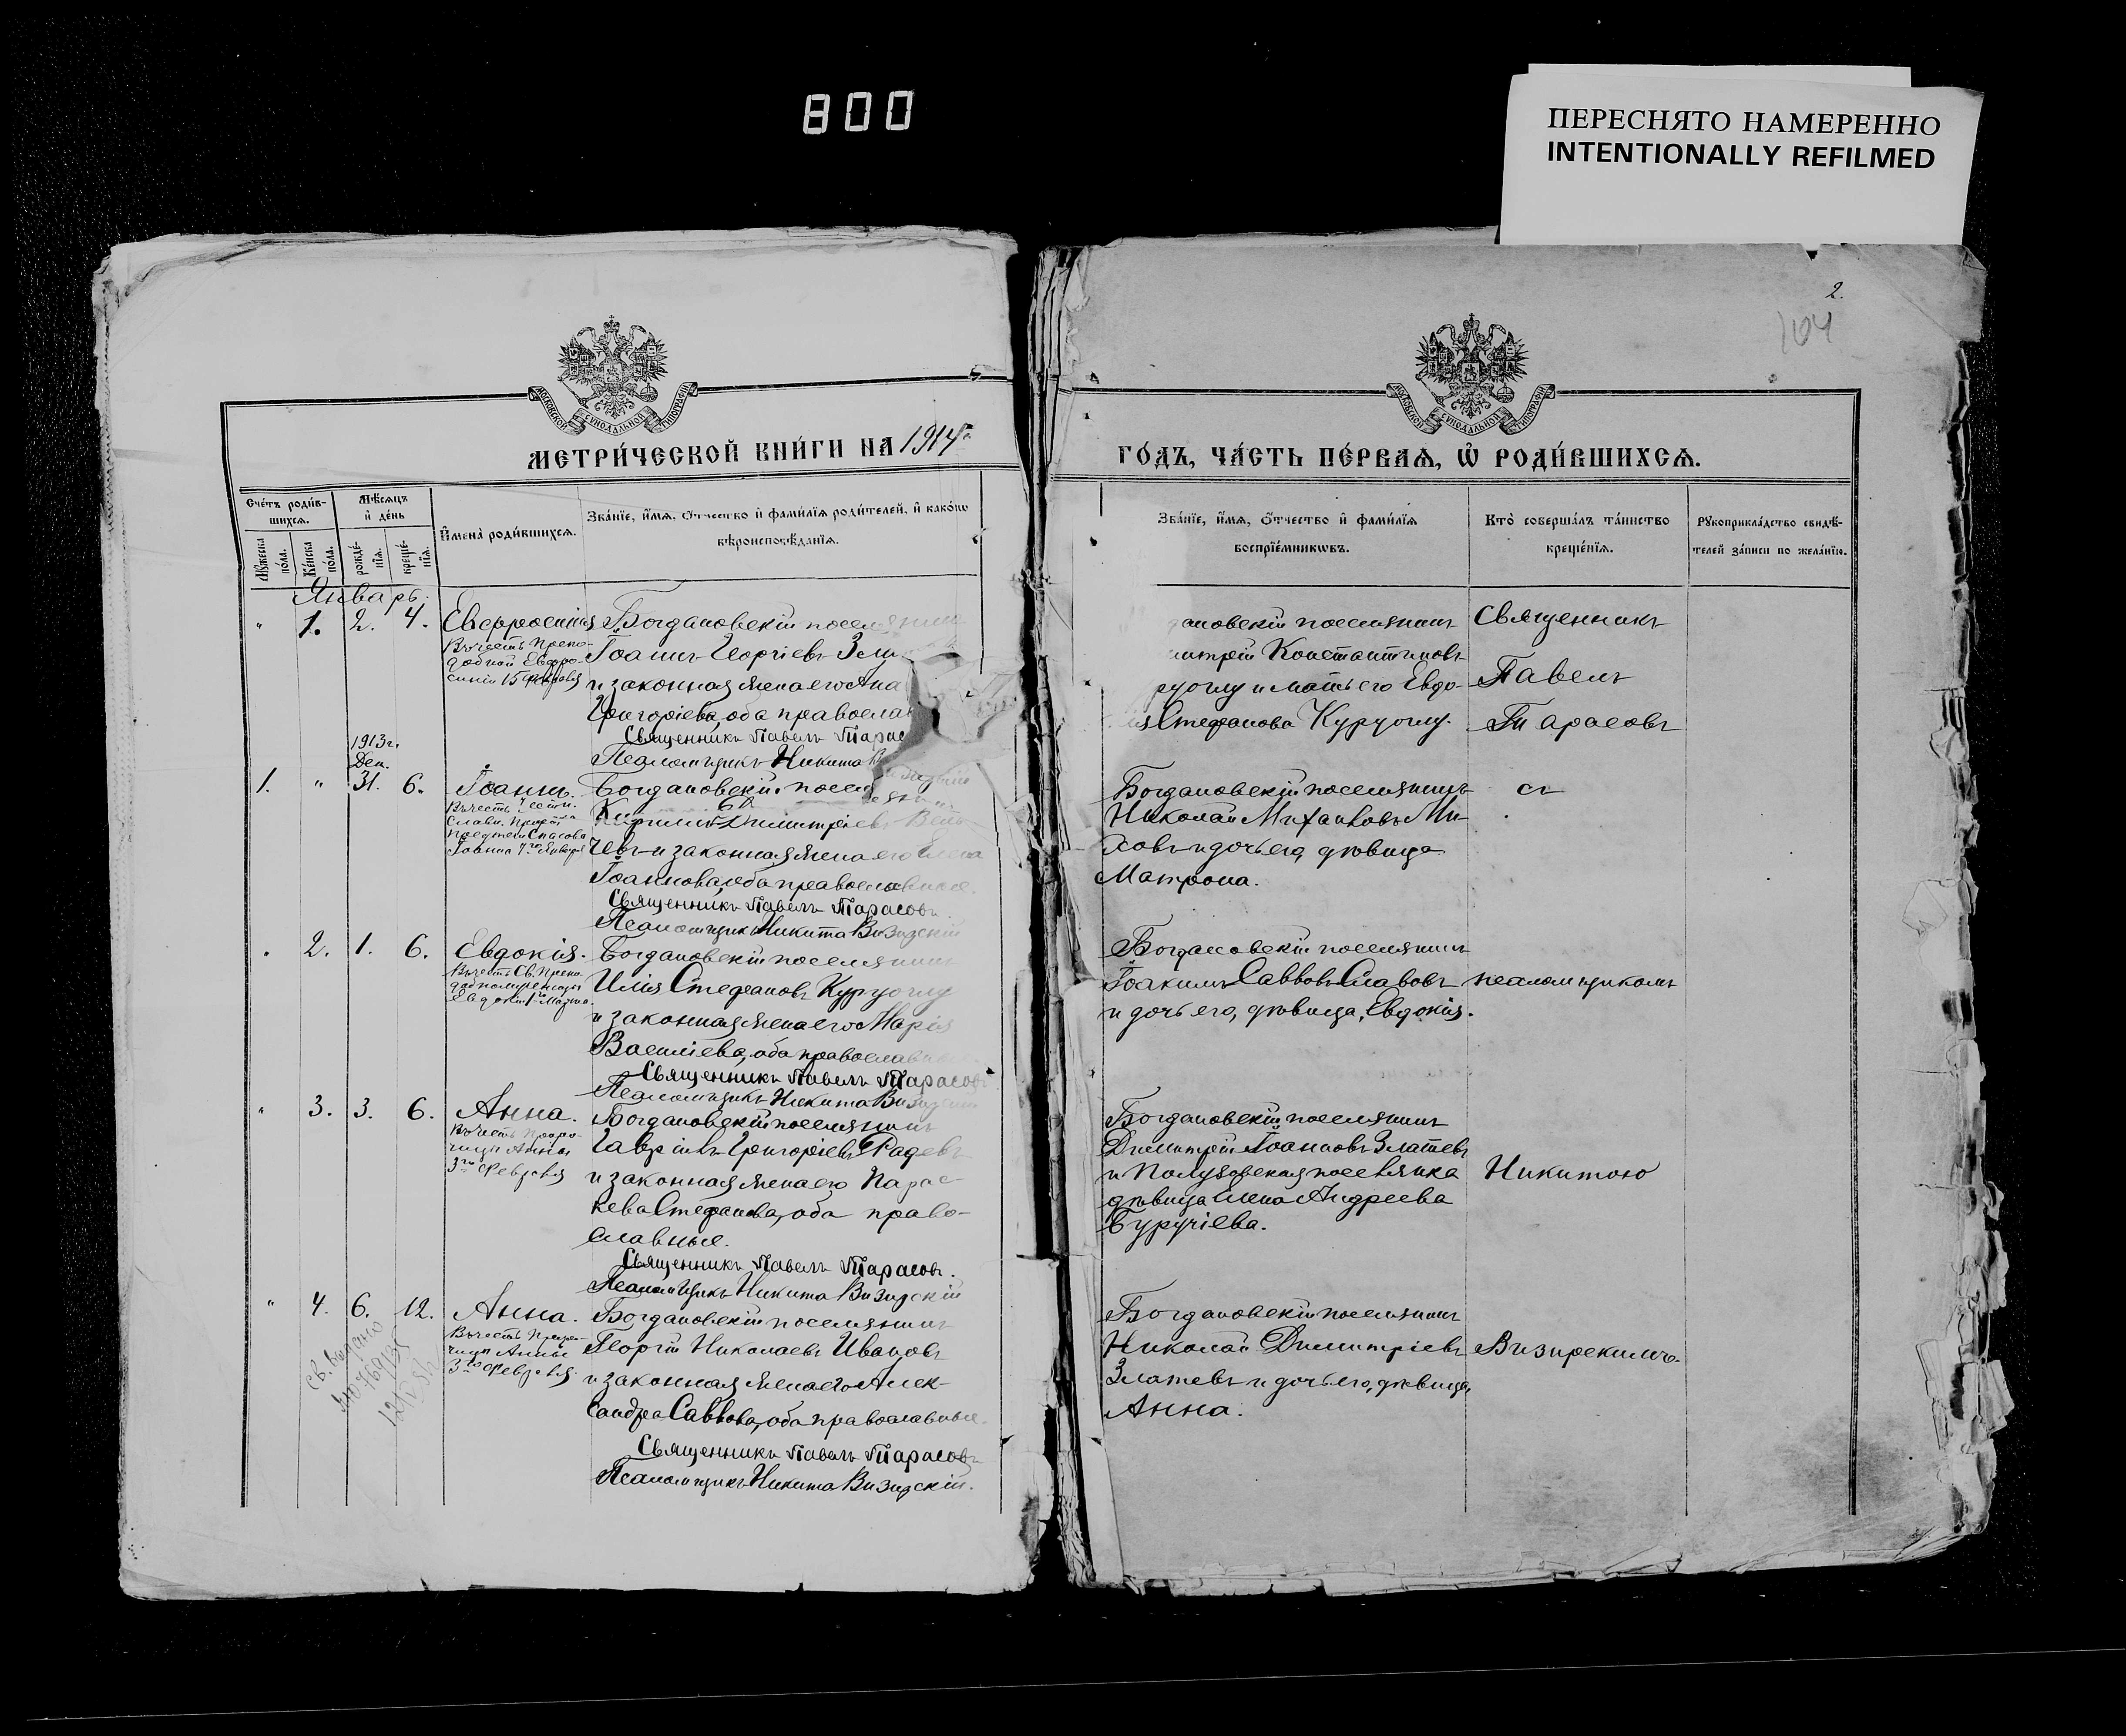 800
ПЕРЕСНЯТО НАМЕРЕННО
INTENTIONALLY REFILMED
2.
104
МОСКОВСКОЙ СУНОДАЛЬНОЙ ТИПОГРАФІИ
МОСКОВСКОЙ СУНОДАЛЬНОЙ ТИПОГРАФІИ
МЕТРИ́ЧЕСКОЙ КНИ́ГИ НА 1914
ГО́ДЪ, ЧА́СТЬ ПЕ́РВАѦ, Ѡ҆ РОДИ́ВШИХСѦ.
Сче́тъ роди́в-
шихсѧ.
Мꙋжеска по́ла.
Же́нска по́ла.
Мѣ́сѧцъ
и҆ де́нь
рожде́-
нїѧ.
креще́-
нїѧ.
И҆мена̀ роди́вшихсѧ.
Зва́нїе, и҆́мѧ, ѻ҆́тчество и҆ фами́лїѧ роди́телей, и҆ како́гѡ
вѣроисповѣ́данїѧ.
Зва́нїе, и҆́мѧ, ѻ҆́тчество и҆ фами́лїѧ
воспрїе́мникѡвъ.
Кто̀ соверша́лъ та́инство
креще́нїѧ.
Рꙋкоприкла́дство свидѣ́-
телей за́писи по жела́нїю.
Январь.
" 1. 2. 4. Евфросинія
Въ честь Препо-
добной Евфро-
синіи 15 Февраля
Богдановскій поселянинъ
Іоаннъ Георгіевъ
и законная жена его Анна
Григоріева, оба православ
Священникъ Павелъ Тарас
Псаломщикъ Никита
дановскій поселянинъ
митрій Константиновъ
руоглу и мать его Евдо-
Стефанова Куруоглу.
Священникъ
Павелъ
Тарасовъ
1913 г.
Дек.
1. " 31. 6. Іоаннъ.
Въ честь Честн.
Славн. Прор
Предтечи Спасова
Іоанна 7го Января
Богдановскій поселянинъ
Кириллъ Димитріевъ
чевъ и законная жена его Елена
Іоаннова, оба православные.
Священникъ Павелъ Тарасовъ.
Псаломщикъ Никита Визирскій
Богдановскій поселянинъ
Николай Михаиловъ Ми-
ховъ и дочь его, дѣвица
Матрона.
съ
" 2. 1. 6. Евдокія.
Въ честь Св. Препо-
добномученицы
Евдокіи 1го Марта.
Богдановскій поселянинъ
Илія Стефановъ Куруоглу
и законная жена его Марія
Василіева, оба православные
Священникъ Павелъ Тарасовъ
Псаломщикъ Никита Визирскій
Богдановскій поселянинъ
Іоакимъ Саввовъ Славовъ
и дочь его, дѣвица, Евдокія.
псаломщикомъ
" 3. 3. 6. Анна.
Въ честь Проро-
чицы Анны
3го Февраля
Богдановскій поселянинъ
Гавріилъ Григоріевъ Радевъ
и законная жена его Парас-
кева Стефанова, оба право-
славные.
Священникъ Павелъ Тарасовъ.
Псаломщикъ Никита Визирскій
Богдановскій поселянинъ
Димитрій Іоанновъ Златевъ
и Полузовская поселянка
дѣвица Елена Андреева
Буручіева.
Никитою
" 4. 6. 12. Анна.
Въ честь Проро-
чицы Анны
3го Февраля
Богдановскій поселянинъ
Георгій Николаевъ Ивановъ
и законная жена его Алек-
сандра Саввова, оба православные.
Священникъ Павелъ Тарасовъ
Псаломщикъ Никита Визирскій.
Богдановскій поселянинъ
Николай Димитріевъ
Златевъ и дочь его, дѣвица,
Анна.
Визирскимъ.